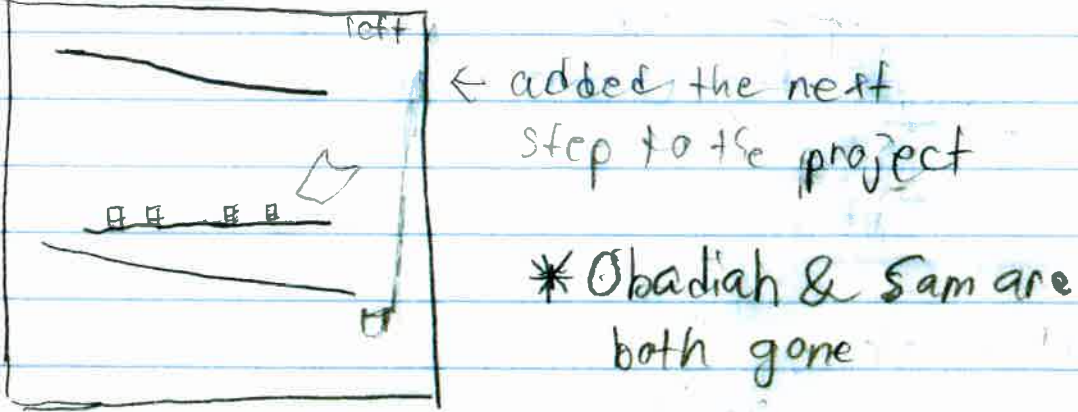 left
← added the next
step to the project
* Obadiah & Sam are
both gone